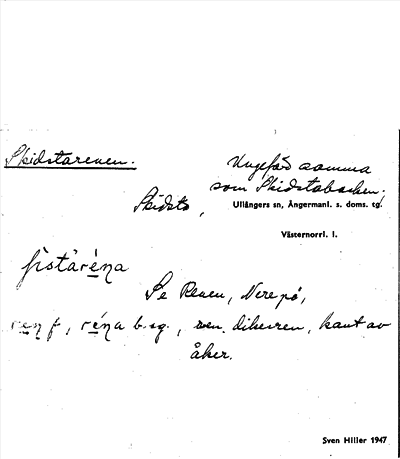 Skidstarenen.
Ungefär samma
som Skidstabacken.
Skidsta,
Ullångers sn, Ångermanl. s. doms. tg.
Västernorrl. l.
Se Renen, Nerepå,
ren f, réna b. sg., ren, dikesren, kant av
åker.
Sven Hiller 1947